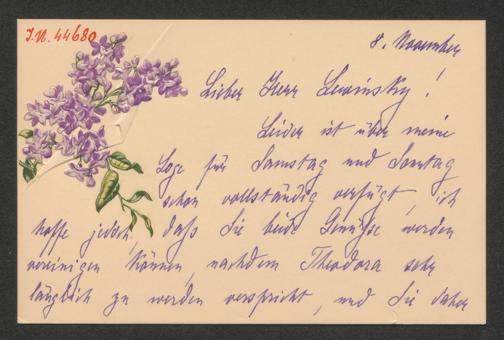 J.N. 44680
8. November
Lieber Herr Lewinsky!
Leider ist über meine
Loge für Samstag und Sonntag
schon vollständig verfügt, ich
hoffe jedoch, daß Sie beide Genüsse werden
vereinigen können, nachdem Theodora sehr
länglich zu werden verspricht, und Sie daher